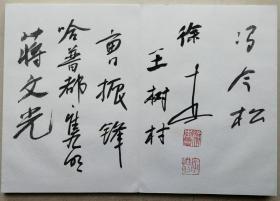 冯今松
徐
王树村
曹振锋
哈普都·隽明
蒋文光